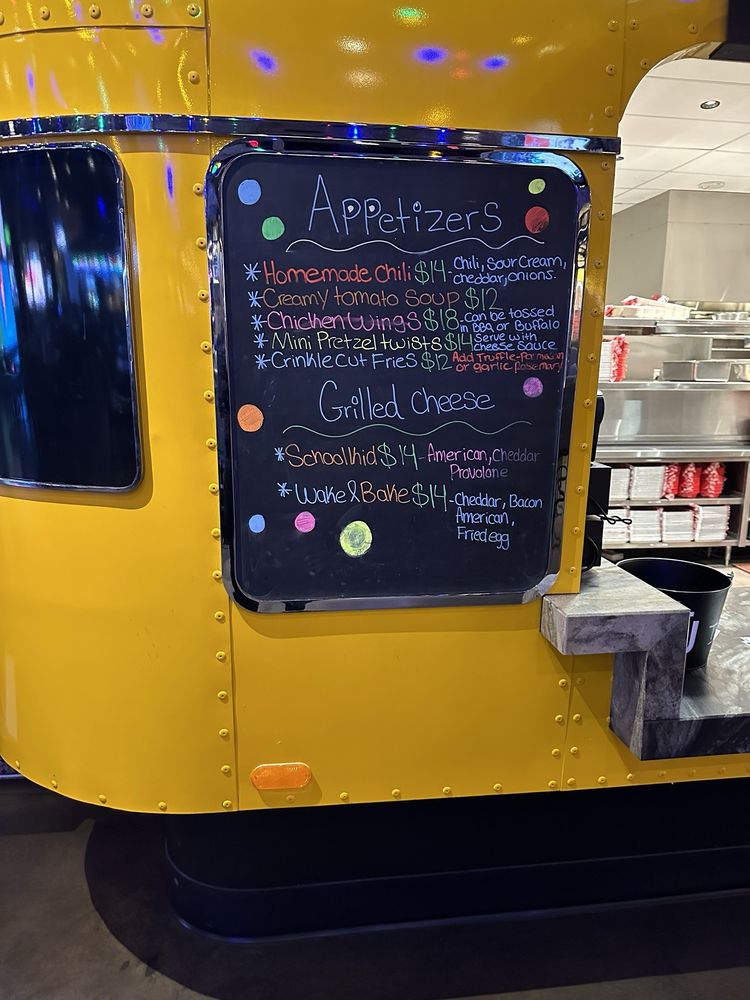 Appetizers
*Homemade Chili $14-Chili, Sour Cream,
cheddar, onions.
*Creamy tomato Soup $12
*Chicken Wings $18-can be tossed
in BBQ or Buffalo
*Mini Pretzel twists $14 Serve with
cheese sauce
*Crinkle cut Fries $12 Add Truffle-Parmesan
or garlic Rosemary
Grilled Cheese
*Schoolkid $14-American, Cheddar
Provolone
*Wake & Bake $14-cheddar, Bacon
American,
Fried egg